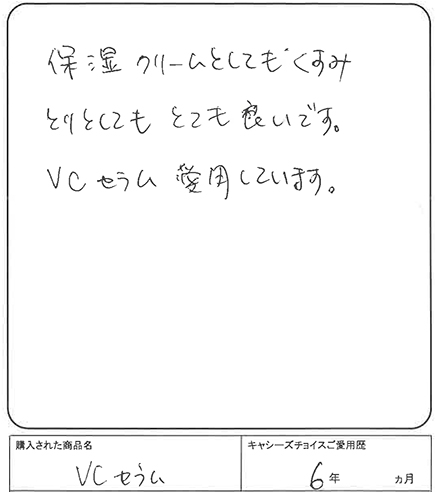 保湿クリームとしてもくすみ
とりとしても とても良いです。
VCセラム 愛用しています。
購入された商品名
キャシーズチョイスご愛用歴
VCセラム
6年 ヵ月